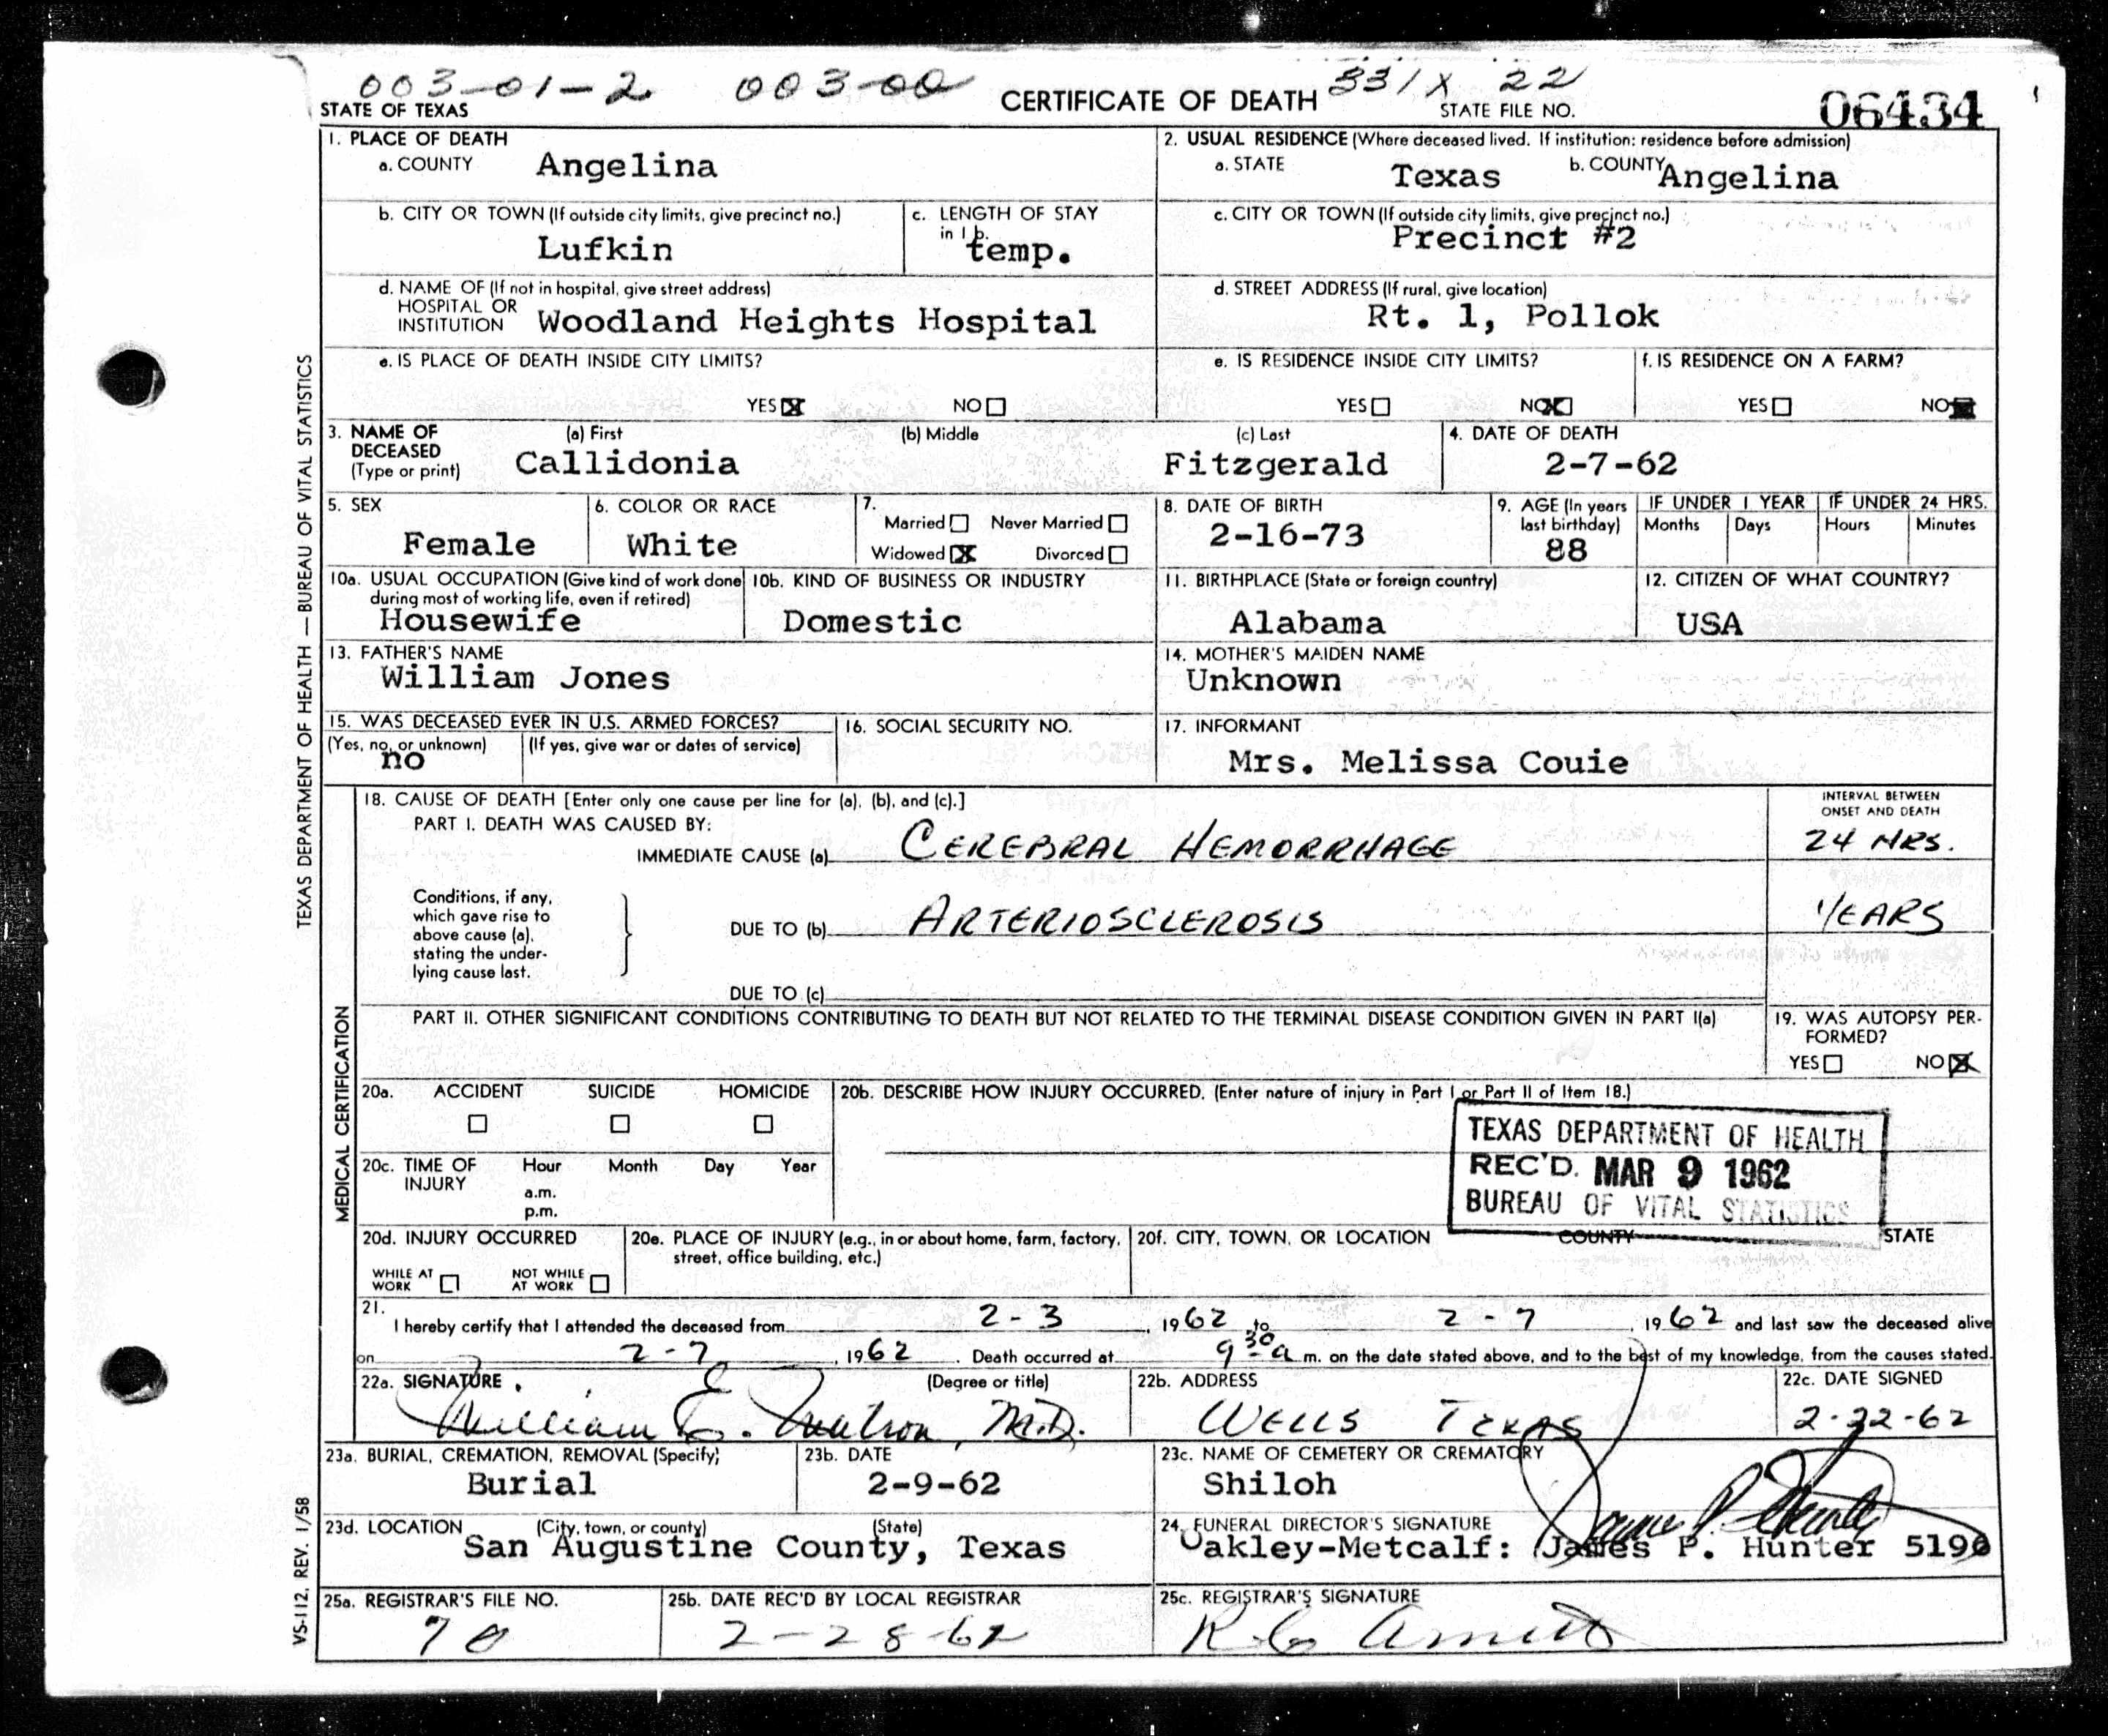 003-01-2 003-00 331X 22
STATE OF TEXAS CERTIFICATE OF DEATH STATE FILE NO. 06434
TEXAS DEPARTMENT OF HEALTH — BUREAU OF VITAL STATISTICS
1. PLACE OF DEATH
a. COUNTY Angelina
2. USUAL RESIDENCE (Where deceased lived. If institution: residence before admission)
a. STATE Texas b. COUNTY Angelina
b. CITY OR TOWN (If outside city limits, give precinct no.) Lufkin
c. LENGTH OF STAY in 1 b. temp.
c. CITY OR TOWN (If outside city limits, give precinct no.) Precinct #2
d. NAME OF (If not in hospital, give street address)
HOSPITAL OR
INSTITUTION Woodland Heights Hospital
d. STREET ADDRESS (If rural, give location)
Rt. 1, Pollok
e. IS PLACE OF DEATH INSIDE CITY LIMITS?
YES X NO
e. IS RESIDENCE INSIDE CITY LIMITS?
YES NO X
f. IS RESIDENCE ON A FARM?
YES NO
3. NAME OF DECEASED (Type or print)
(a) First (b) Middle (c) Last
Callidonia Fitzgerald
4. DATE OF DEATH
2-7-62
5. SEX
Female
6. COLOR OR RACE
White
7.
Married Never Married
Widowed X Divorced
8. DATE OF BIRTH
2-16-73
9. AGE (In years last birthday)
88
IF UNDER 1 YEAR
Months Days
IF UNDER 24 HRS.
Hours Minutes
10a. USUAL OCCUPATION (Give kind of work done during most of working life, even if retired)
Housewife
10b. KIND OF BUSINESS OR INDUSTRY
Domestic
11. BIRTHPLACE (State or foreign country)
Alabama
12. CITIZEN OF WHAT COUNTRY?
USA
13. FATHER'S NAME
William Jones
14. MOTHER'S MAIDEN NAME
Unknown
15. WAS DECEASED EVER IN U.S. ARMED FORCES?
(Yes, no, or unknown) (If yes, give war or dates of service)
no
16. SOCIAL SECURITY NO.
17. INFORMANT
Mrs. Melissa Couie
MEDICAL CERTIFICATION
18. CAUSE OF DEATH [Enter only one cause per line for (a), (b), and (c).]
INTERVAL BETWEEN ONSET AND DEATH
PART I. DEATH WAS CAUSED BY:
IMMEDIATE CAUSE (a) CEREBRAL HEMORRHAGE 24 HRS.
Conditions, if any, which gave rise to above cause (a), stating the underlying cause last.
DUE TO (b) ARTERIOSCLEROSIS YEARS
DUE TO (c)
PART II. OTHER SIGNIFICANT CONDITIONS CONTRIBUTING TO DEATH BUT NOT RELATED TO THE TERMINAL DISEASE CONDITION GIVEN IN PART I(a)
19. WAS AUTOPSY PERFORMED?
YES NO X
20a. ACCIDENT SUICIDE HOMICIDE
20b. DESCRIBE HOW INJURY OCCURRED. (Enter nature of injury in Part I or Part II of Item 18.)
TEXAS DEPARTMENT OF HEALTH
REC'D. MAR 9 1962
BUREAU OF VITAL STATISTICS
20c. TIME OF INJURY Hour Month Day Year
a.m.
p.m.
20d. INJURY OCCURRED
WHILE AT WORK NOT WHILE AT WORK
20e. PLACE OF INJURY (e.g., in or about home, farm, factory, street, office building, etc.)
20f. CITY, TOWN, OR LOCATION COUNTY STATE
21.
I hereby certify that I attended the deceased from 2-3, 1962 to 2-7, 1962 and last saw the deceased alive
on 2-7, 1962. Death occurred at 9 30 a m. on the date stated above, and to the best of my knowledge, from the causes stated.
22a. SIGNATURE (Degree or title)
William E. Watson, M.D.
22b. ADDRESS
WELLS TEXAS
22c. DATE SIGNED
2-22-62
23a. BURIAL, CREMATION, REMOVAL (Specify)
Burial
23b. DATE
2-9-62
23c. NAME OF CEMETERY OR CREMATORY
Shiloh
23d. LOCATION (City, town, or county) (State)
San Augustine County, Texas
24. FUNERAL DIRECTOR'S SIGNATURE
James P. Hunter
Oakley-Metcalf: James P. Hunter 5196
25a. REGISTRAR'S FILE NO.
70
25b. DATE REC'D BY LOCAL REGISTRAR
2-28-62
25c. REGISTRAR'S SIGNATURE
Arnett
VS-112, REV. 1/58